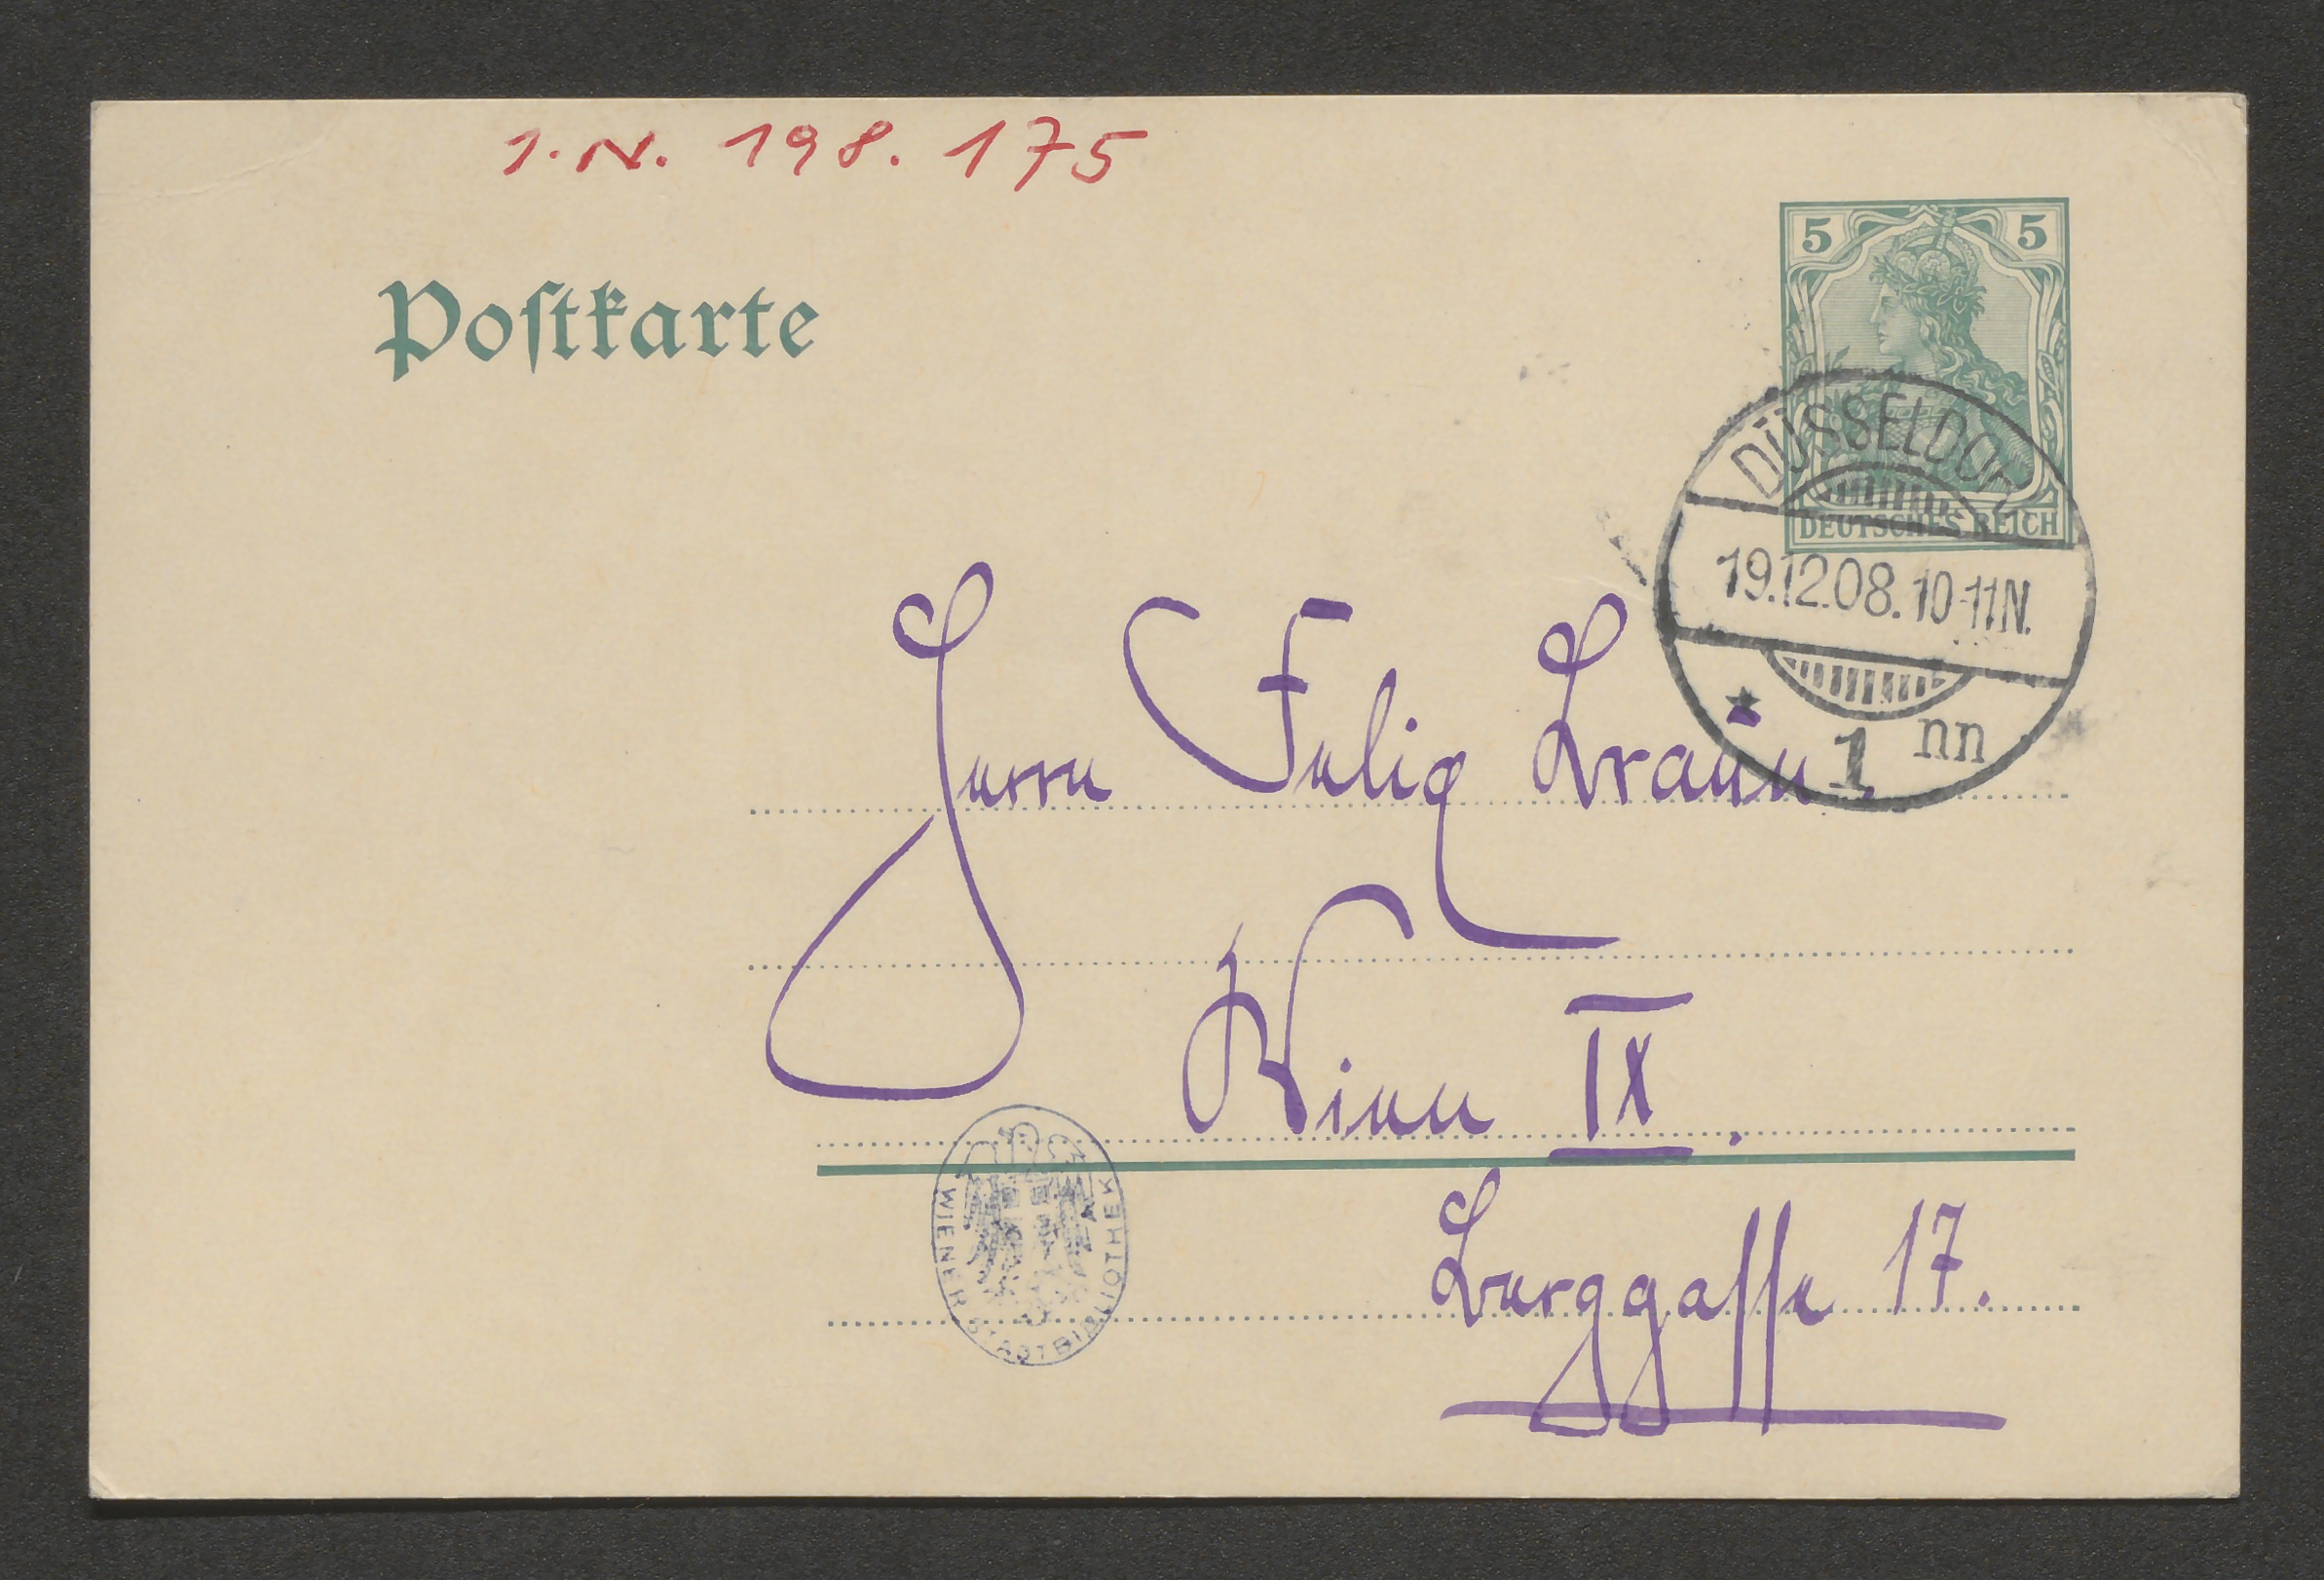 I. N. 198. 175
Postkarte
5 5
DEUTSCHES REICH
DÜSSELDORF
19.12.08. 10-11 N.
* 1 nn
Herrn Felix Braun.
Wien IX.
Berggasse 17.
WIENER STADTBIBLIOTHEK